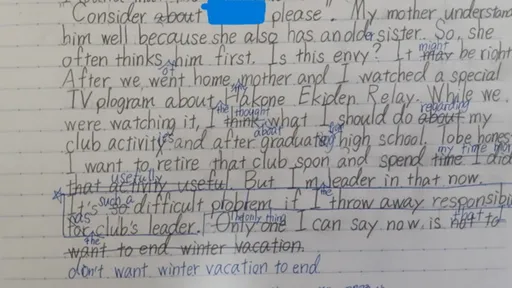 "Consider about please". My mother understand
him well because she also has an older sister. So, she
often thinks of him first. Is this envy? It may might be right
After we went home, mother and I watched a special
TV plogram about the Hakone Ekiden Relay. While we
were watching it, I think thought what I should do about regarding my
club activity and about after graduating high school. To be hones
I want to retire that club soon and spend time my time I did
that activity useful usefully. But I m leader in that now.
It's so such a difficult problem if I throw away the responsibi
for as club's leader. Only one The only thing I can say now is not to that I
want to end the winter vacation.
don't want winter vacation to end